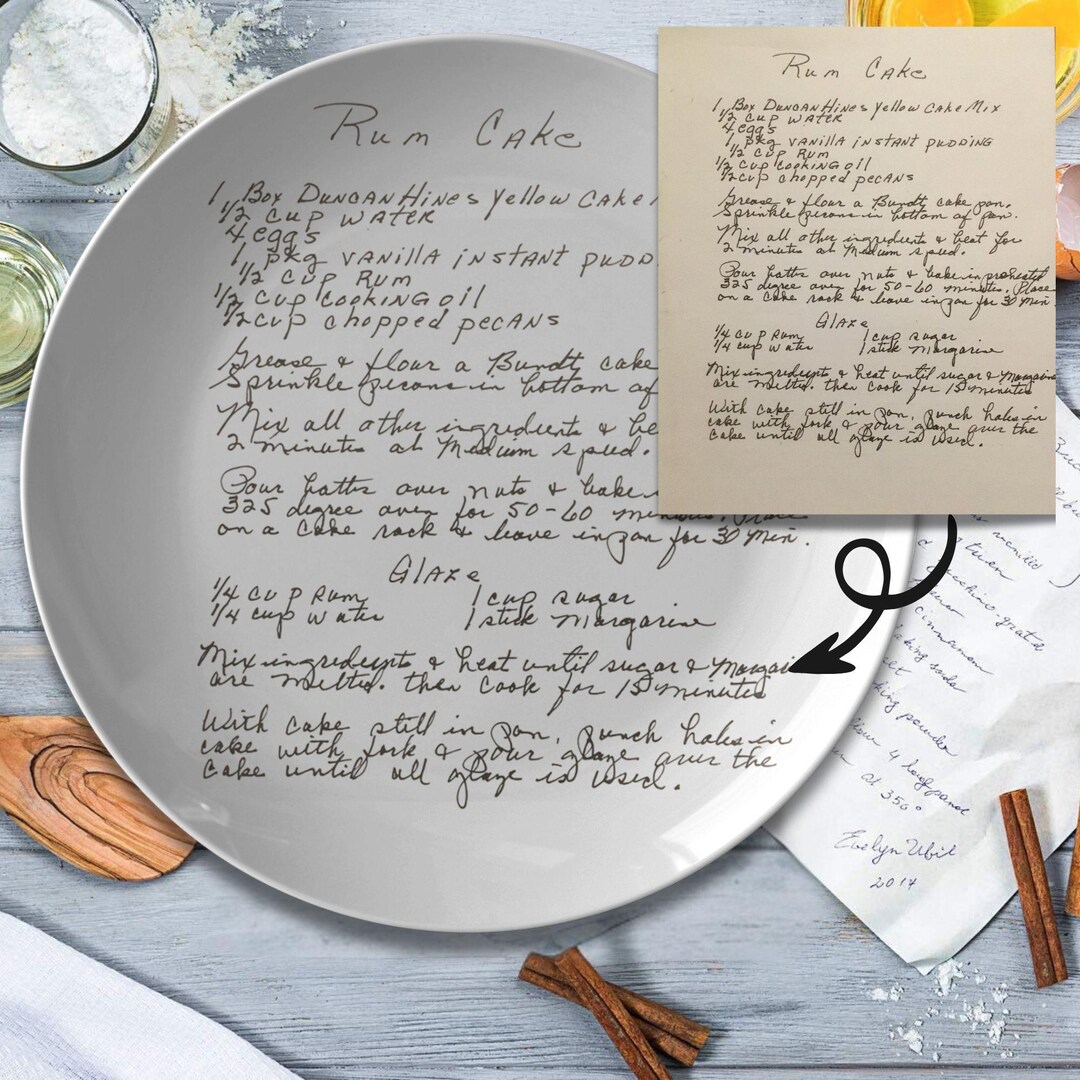 Rum Cake
1 Box Duncan Hines yellow Cake
1/2 cup water
4 eggs
1 pkg vanilla instant pudd
1/2 cup Rum
1/2 cup cooking oil
1/2 cup chopped pecans
Grease & flour a Bundt cake
Sprinkle pecans in bottom of
Mix all other ingredients & be
2 minutes at Medium speed.
Pour batter over nuts & bake
325 degree oven for 50-60 minutes. Place
on a cake rack & leave in pan for 30 Min.
Glaze
1/4 cup Rum 1 cup sugar
1/4 cup water 1 stick Margarine
Mix ingredients & heat until sugar & Margari
are melted. then cook for 15 minutes
With cake still in pan, punch holes in
cake with fork & pour glaze over the
cake until all glaze is used.
Rum Cake
1 Box Duncan Hines yellow Cake Mix
1/2 cup water
4 eggs
1 pkg vanilla instant pudding
1/2 cup Rum
1/2 cup cooking oil
1/2 cup chopped pecans
Grease & flour a Bundt cake pan.
Sprinkle pecans in bottom of pan.
Mix all other ingredients & beat for
2 minutes at Medium speed.
Pour batter over nuts & bake in preheated
325 degree oven for 50-60 minutes. Place
on a cake rack & leave in pan for 30 Min
Glaze
1/4 cup Rum 1 cup sugar
1/4 cup water 1 stick Margarine
Mix ingredients & heat until sugar & Margarine
are melted. then cook for 15 minutes
With cake still in pan, punch holes in
cake with fork & pour glaze over the
cake until all glaze is used.
zucchini-grated
cinnamon
baking soda
king powder
at 350°
Evelyn
2014